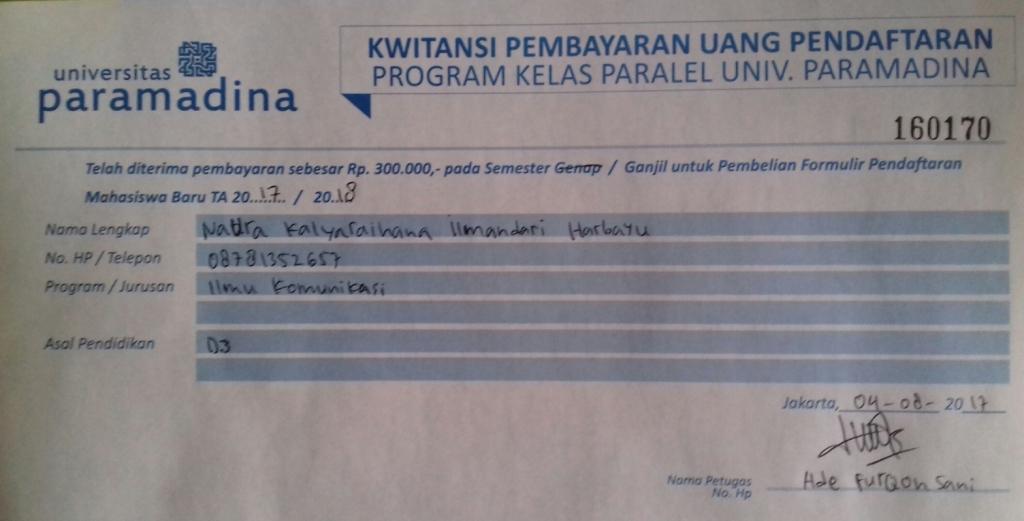 universitas
paramadina
KWITANSI PEMBAYARAN UANG PENDAFTARAN
PROGRAM KELAS PARALEL UNIV. PARAMADINA
160170
Telah diterima pembayaran sebesar Rp. 300.000,- pada Semester Genap / Ganjil untuk Pembelian Formulir Pendaftaran
Mahasiswa Baru TA 20..17.. / 20..18
Nama Lengkap Kalyaraihana Ilmandari Harbayu
No. HP / Telepon 08781352657
Program / Jurusan Ilmu Komunikasi
Asal Pendidikan D3
Jakarta, 04-08- 2017
Nama Petugas Ade Furqon Sani
No. Hp